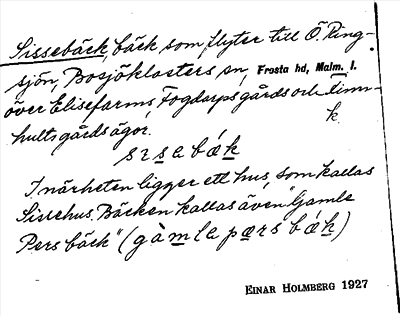 Sissebäck, bäck som flyter till Ö. Ring-
sjön, Bosjöklosters sn, Frosta hd, Malm. l.
över Elisefarms, Fogdarps gårds och Finn-
hults gårds ägor. k.
sɪsabǽk
I närheten ligger ett hus, som kallas
Sissehus. Bäcken kallas även "Gamle
Pers bäck" (gàmla pærs bǽk)
EINAR HOLMBERG 1927